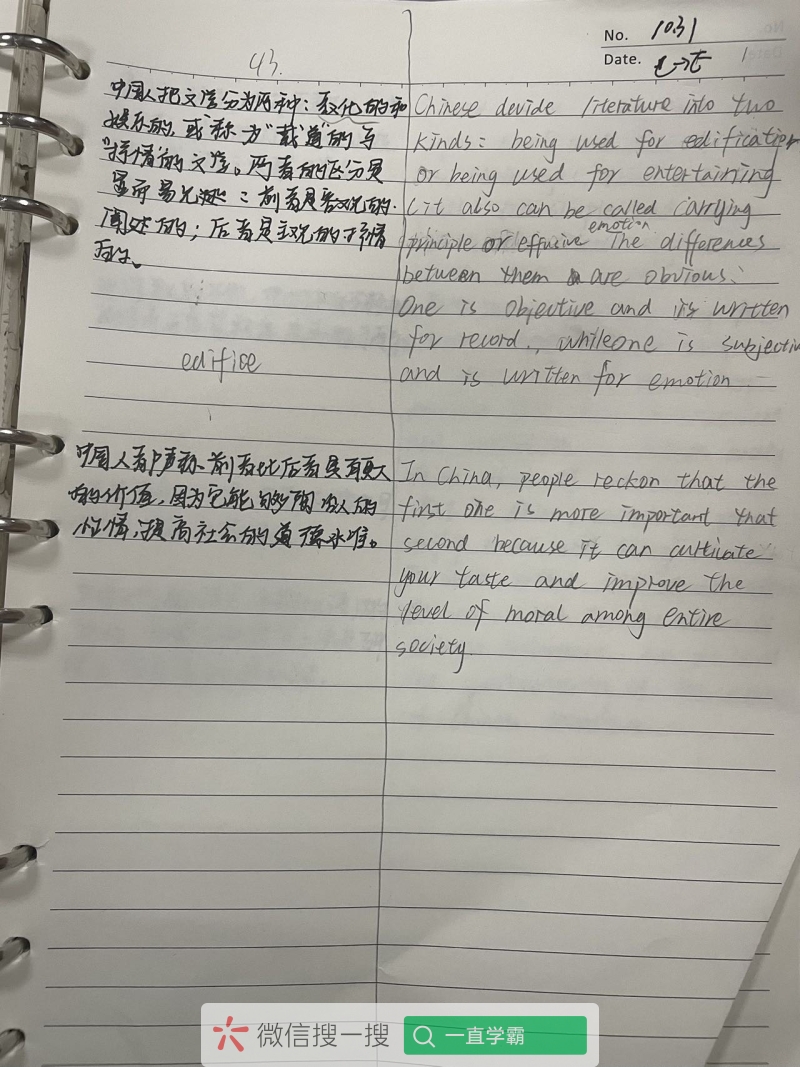 No. 1031
Date. 七→五
43.
中国人把文学分为两种：教化的和
娱乐的，或称为“载道”的与
“抒情”的文学。两者的区分是
显而易见：前者是客观的.
阐述的；后者是主观的抒情
Chinese devide literature into two
kinds: being used for edification
or being used for entertaining
(it also can be called carrying
principle or effusive emotion The differences
between them are obvious:
One is objective and its written
for record., while one is subjective
and is written for emotion
edifice
中国人都声称、前者比后者具有更大
的价值，因为它能够陶冶人的
性情，提高社会的道德水准。
In China, people reckon that the
first one is more important that
second because it can cultivate
your taste and improve the
level of moral among entire
society.
微信搜一搜
一直学霸